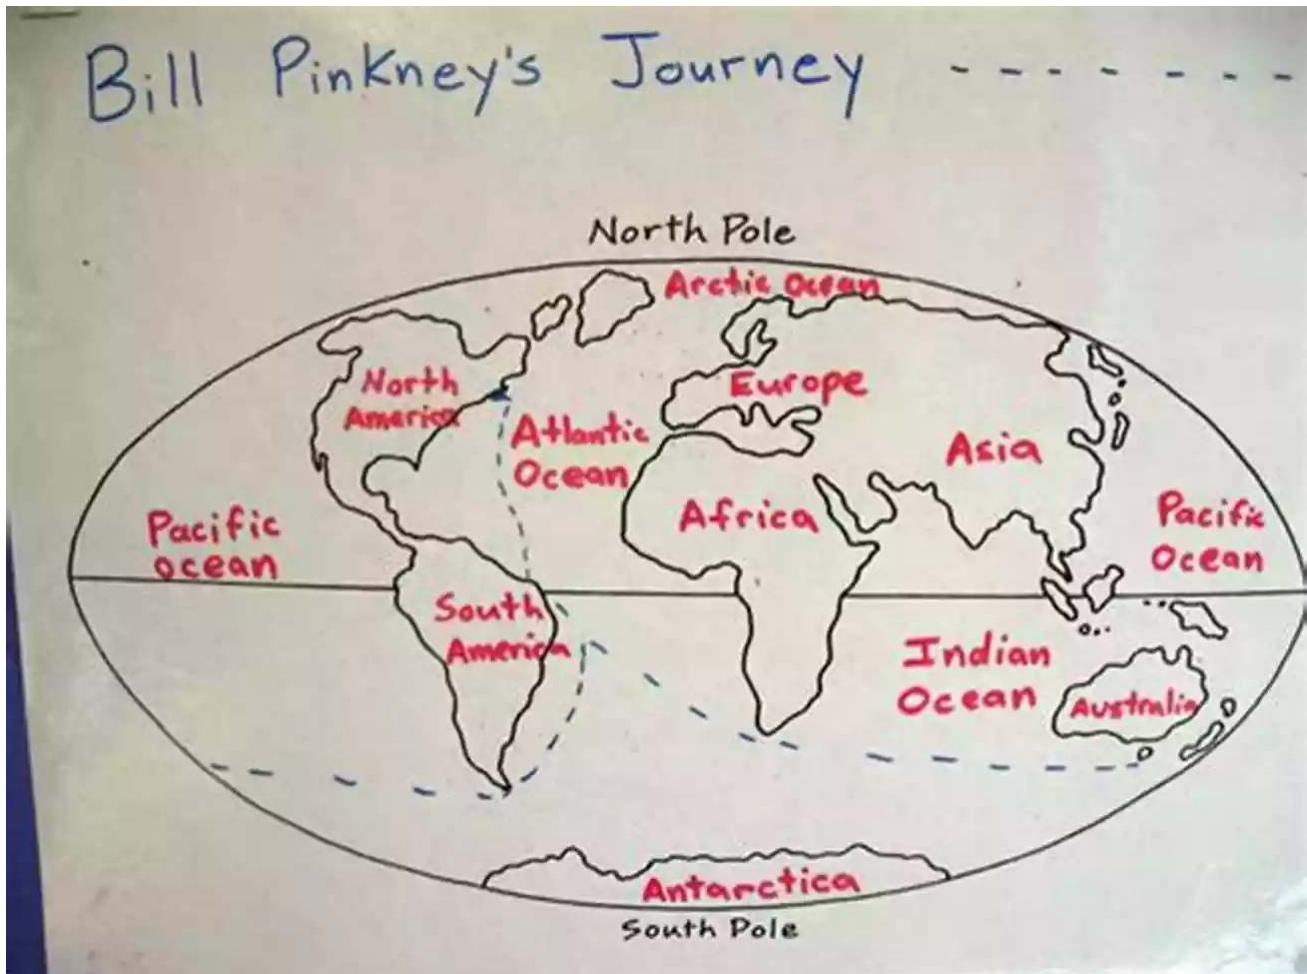 Bill Pinkney's Journey - - - - - - -
North Pole
Arctic Ocean
North
America
Europe
Atlantic
Ocean
Asia
Africa
Pacific
ocean
Pacific
Ocean
South
America
Indian
Ocean
Australia
Antarctica
South Pole